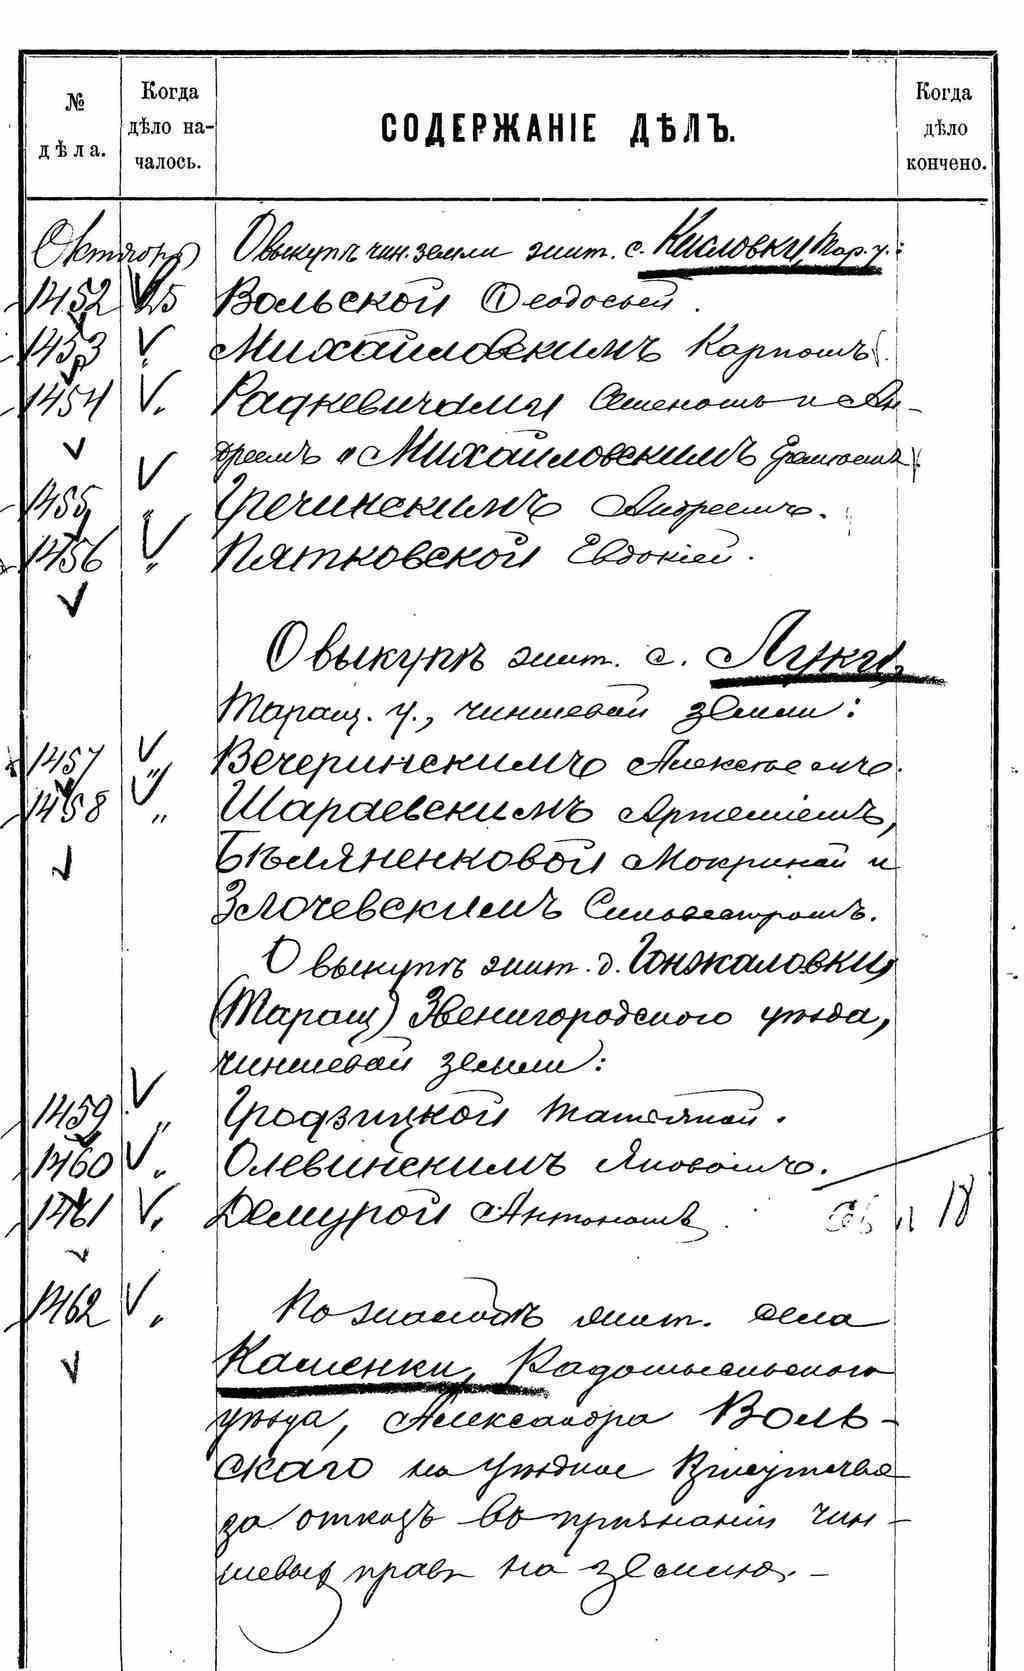 № дѣла.
Когда дѣло на-чалось.
СОДЕРЖАНІЕ ДѢЛЪ.
Когда дѣло кончено.
Октября О выкупѣ чин. земли жит. с. Кисловки, Тар. у.:
1452 25 Вольской Ѳеодосьей.
1453 " Михайловскимъ Карпомъ.
1454 " Радкевичами Семеномъ и Ан-
дреемъ и Михайловскимъ
1455 " Гречинскимъ Андреемъ.
1456 " Пятковской Евдокіей.
О выкупѣ жит. с. Луки,
Таращ. у., чиншевой земли:
1457 " Вечеринскимъ Алексѣемъ.
1458 " Шараевскимъ Артеміемъ,
Бѣляненковой Мокриной и
Злочевскимъ Сильвестромъ.
О выкупѣ жит. д. Гонжаловки,
(Таращ) Звенигородского уѣзда,
чиншевой земли:
1459 " Гродзицкой Татьяной.
1460 " Олевинскимъ Яковомъ.
1461 " Демурой Антономъ. 18
1462 " По жалобѣ жит. села
Каменки, Радомысльского
уѣзда, Александра Воль-
скаго на Уѣздное Присутствіе
за отказъ въ признаніи чин-
шевыхъ правъ на землю.-